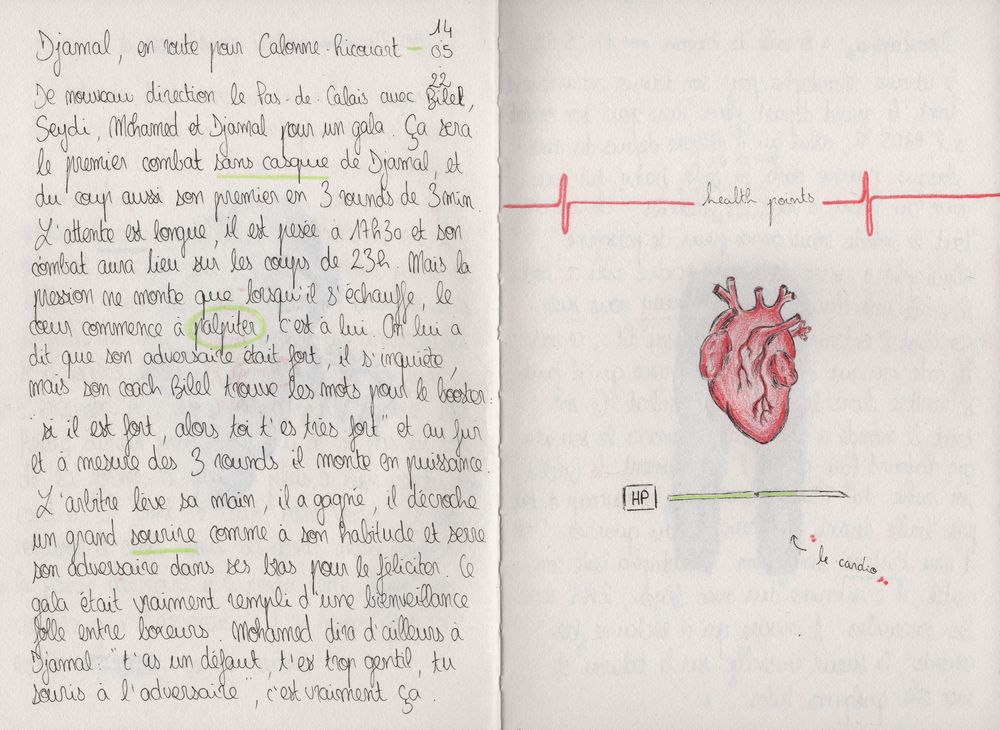 Djamal, en route pour Calonne-Ricouart – 14
05
22
De nouveau direction le Pas-de-Calais avec Bilel,
Seydi, Mohamed et Djamal pour un gala. Ça sera
le premier combat sans casque de Djamal, et
du coup aussi son premier en 3 rounds de 3 min.
L'attente est longue, il est pesée a 17h30 et son
combat aura lieu sur les coups de 23h. Mais la
pression ne monte que lorsqu'il s'échauffe, le
cœur commence à palpiter, c'est à lui. On lui a
dit que son adversaire était fort, il s'inquiète,
mais son coach Bilel trouve les mots pour le booster:
"si il est fort, alors toi t'es très fort" et au fur
et à mesure des 3 rounds il monte en puissance.
L'arbitre lève sa main, il a gagné, il décroche
un grand sourire comme à son habitude et serre
son adversaire dans ses bras pour le féliciter. Ce
gala était vraiment rempli d'une bienveillance
folle entre boxeurs. Mohamed dira d'ailleurs à
Djamal: "t'as un défaut, t'es trop gentil, tu
souris à l'adversaire", c'est vraiment ça.
health points
HP
le cardio